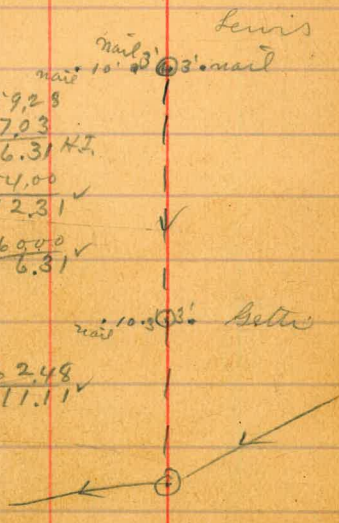 Lewis
nail 3' 3' nail
nail 10'
9.28
7.03
6.31 H.I.
4.00
2.31 ✓
6000
6.31 ✓
nail 10.3 3'
2.48
11.11 ✓